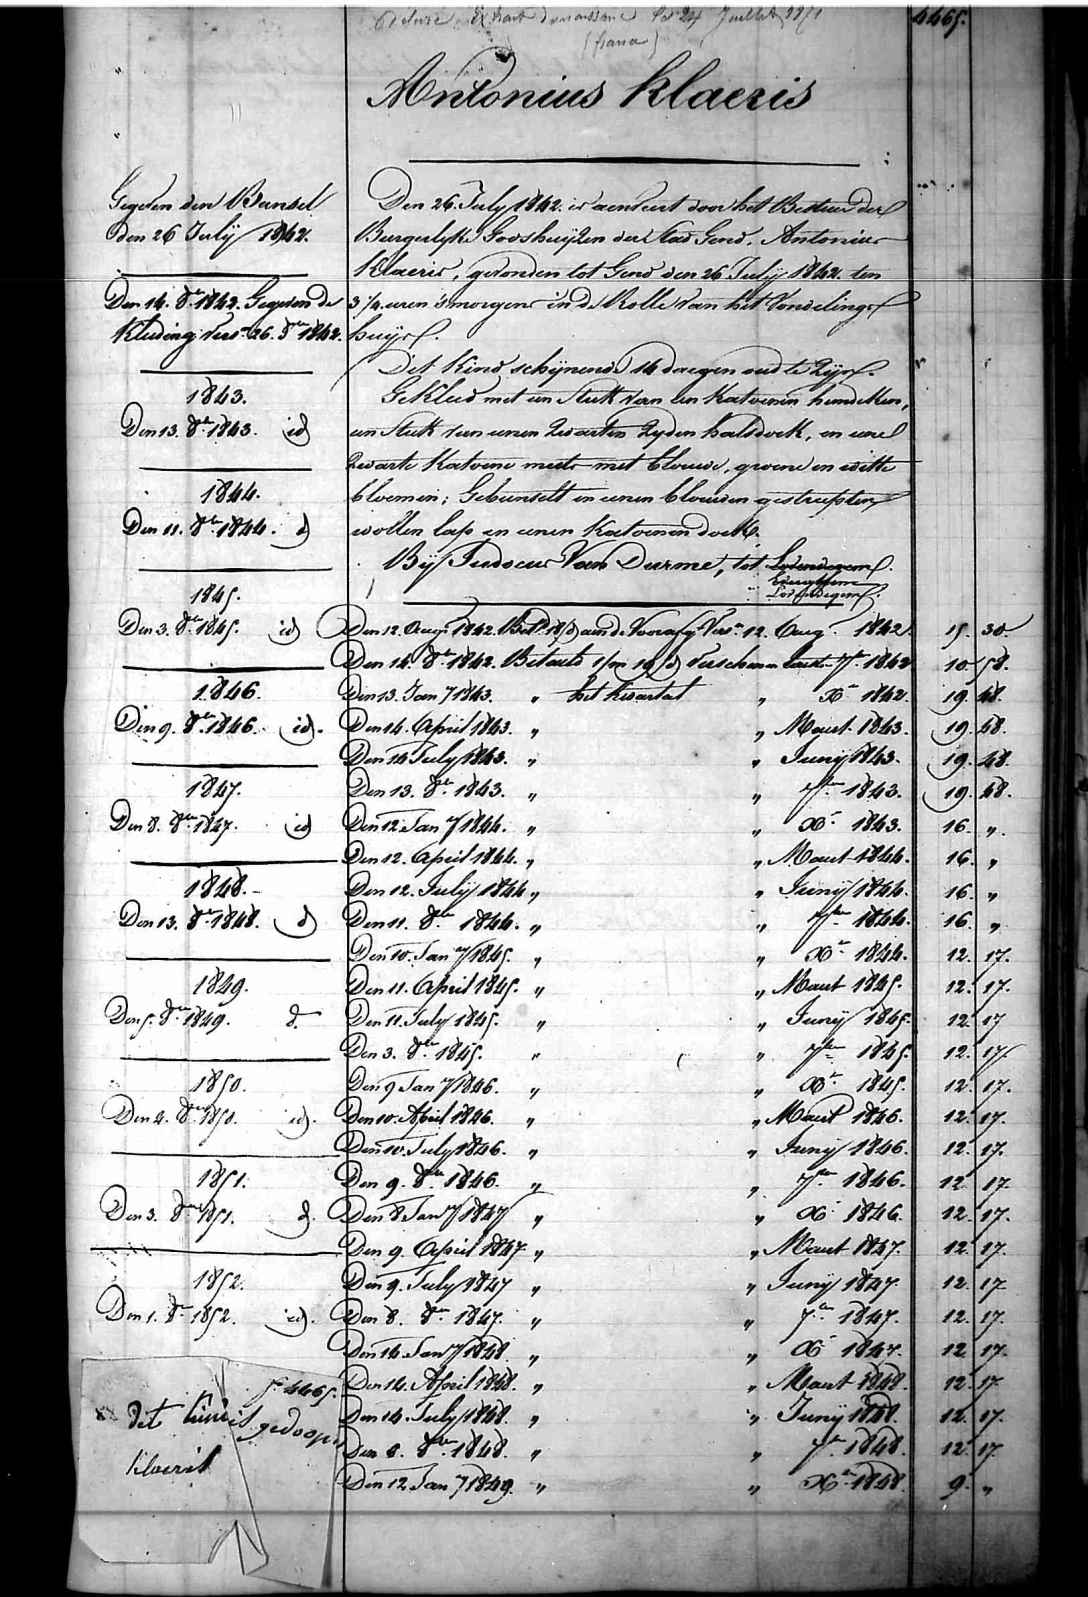 Délivré Extrait de naissance le 24 Juillet 1871
(franco)
4465.
Antonius Klaeris
Gegeven den Bunsel
den 26 July 1842.
Den 14. 8re 1842. Gegeven de
Kleding vers. 26. 1842.
1843.
Den 13. 8re 1843. id
1844.
Den 11. 8re 1844. d
1845.
Den 3. 8re 1845. id
1846.
Den 9. 8re 1846. id.
1847.
Den 8. 8re 1847. id
1848.
Den 13. 8re 1848. d
1849.
Den 5. 8re 1849. d.
1850.
Den 2. 8re 1850. id.
1851.
Den 3. 8re 1851. d.
1852.
Den 1. 8re 1852. id.
Den 26 July 1842. is aenveert door het Bestuer der
Burgerlyke Godshuyzen der Stad Gend, Antonius
Klaeris, gevonden tot Gend den 26 July 1842. ten
3 1/4 uren 's morgens in de Rolle van het Vondelings
huys.
Dit Kind schynende 14 daegen oud te zyn.
Gekleed met een Stuk van een Katoenen hemdeken,
een Stuk van eenen Zwarten Zyden halsdoek, en eene
Zwarte Katoene muts met blouwe, groene en witte
bloemen; Gebunselt in eenen blouwen gestreepten
wollen lap en eenen Katoenen doek.
By Judocus Van Durme, tot Lovendegem.
Everghem
Lovendegem.
Den 12. Aug. 1842. Bet. aen de Voorafg. Vers. 12. Aug. 1842. 15. 30.
Den 14. 8re 1842. Betaelt verschenen 7re 1842 10. 58.
Den 13. Jany 1843. " het kwartael " Xre 1842. 19. 48.
Den 14. April 1843. " " Maert 1843. 19. 48.
Den 14 July 1843. " " Juny 1843. 19. 48.
Den 13. 8re 1843. " " 7re 1843. 19. 48.
Den 12 Jany 1844. " " Xre 1843. 16. "
Den 12. April 1844. " " Maert 1844. 16. "
Den 12. July 1844 " " Juny 1844. 16. "
Den 11. 8re 1844. " " 7re 1844. 16. "
Den 10. Jany 1845. " " Xre 1844. 12. 17.
Den 11. April 1845. " " Maert 1845. 12. 17.
Den 11. July 1845. " " Juny 1845. 12. 17
Den 3. 8re 1845. " " 7re 1845. 12. 17.
Den 9 Jany 1846. " " Xre 1845. 12. 17.
Den 10. April 1846. " " Maert 1846. 12. 17.
Den 10. July 1846. " " Juny 1846. 12. 17.
Den 9. 8re 1846. " " 7re 1846. 12. 17.
Den 8 Jany 1847 " " Xre 1846. 12. 17.
Den 9. April 1847 " " Maert 1847. 12. 17.
Den 9. July 1847 " " Juny 1847. 12. 17.
Den 8. 8re 1847. " " 7re 1847. 12. 17.
Den 14 Jany 1848. " " Xre 1847. 12. 17.
Den 14. April 1848. " " Maert 1848. 12. 17
Den 14. July 1848. " " Juny 1848. 12. 17.
Den 8. 8re 1848. " " 7re 1848. 12. 17.
Den 12 Jany 1849. " " Xre 1848. 9. "
4465.
dit kind is gedoopt
klaeris